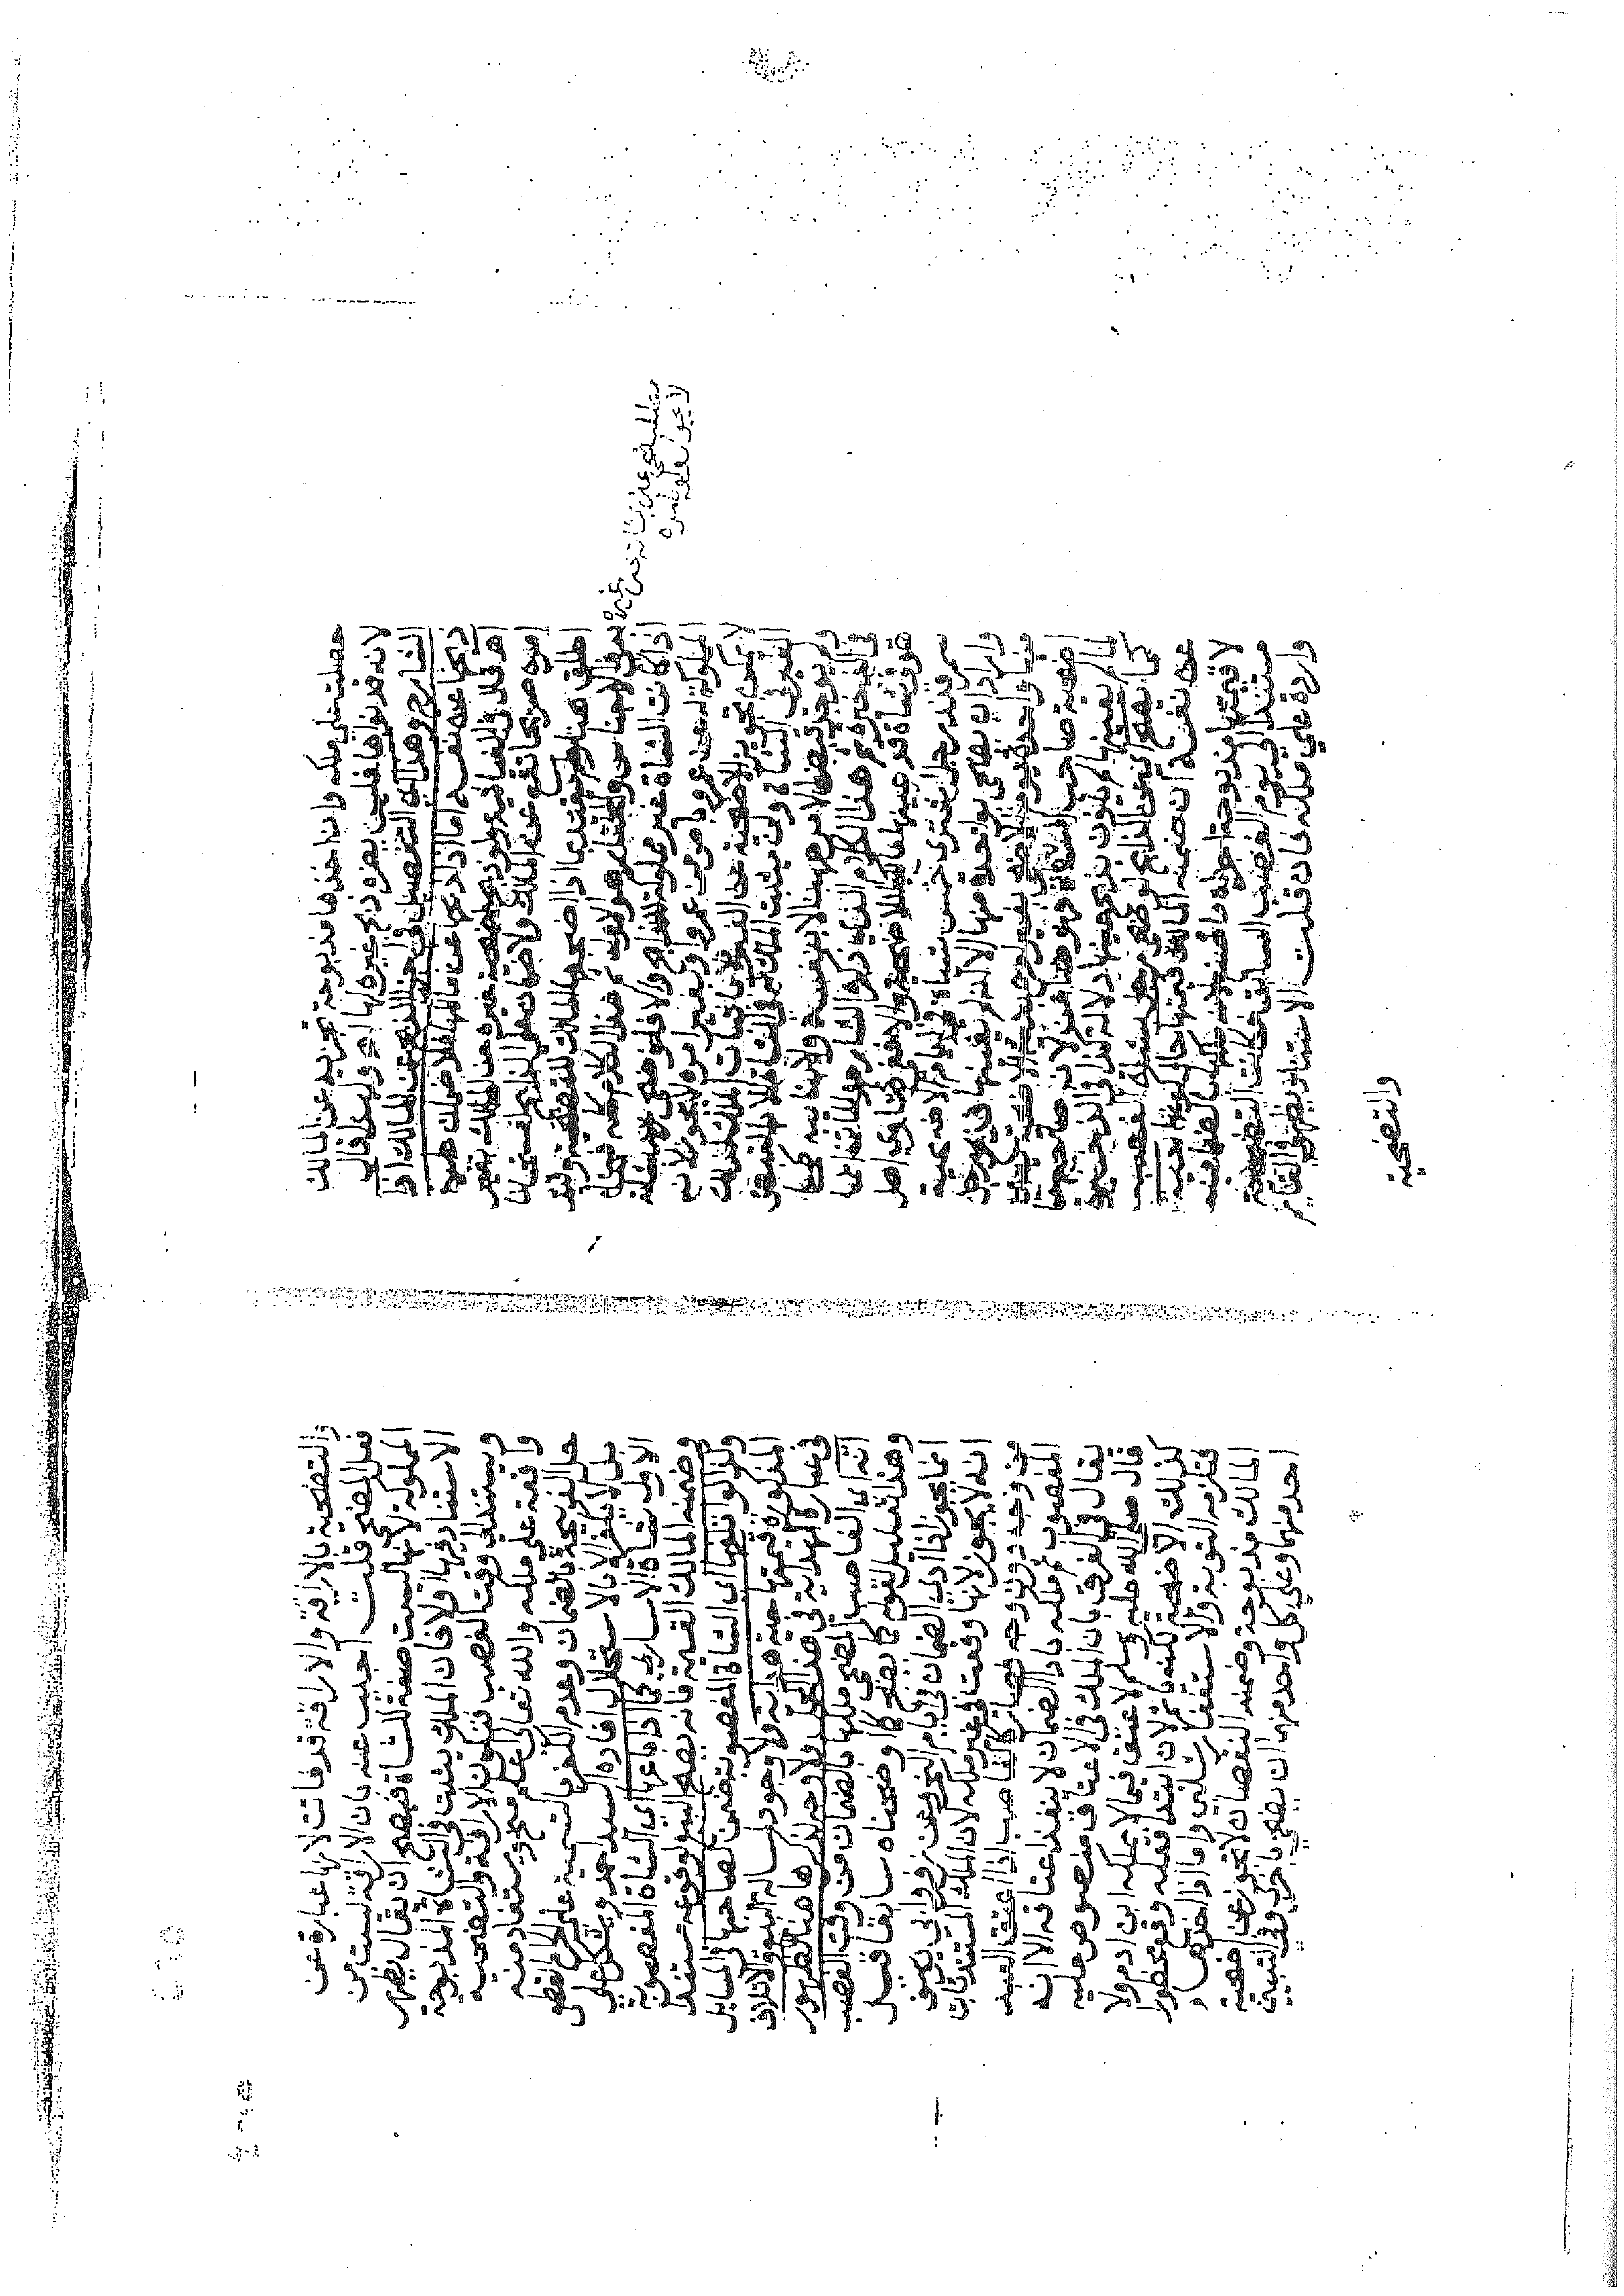 حصلت على ملكه وان اخذها مذبوحة تجزيه عن المالك
لانه قد نواها فليس يضره ذبح غيره لها اه ولهذا قال
الشارح وهذا اي التفصيل في اجزا الذبح عن المالك اذا
ذبحها عن نفسه اما اذا ذبحها عن مالكها فلا ضمان عليه
اه قلت وفي الغاية ولو ذبح اضحية غيره عن المالك بغير
امره صريحا تقع عن المالك ولا ضمان على الذابح استحسانا
اطلق هنا وقيده بعضهم بما اذا اضجعها المالك للتضحية
بعض الاجناس هو الاول ثم هذا الكلام كله فيما
مطلب ضحى بشاته عن غيره
لا يجوز ولو بامره
اذا كانت الشاة غير مملوكة للذابح والا فلو ضحى بشاته
المملوكة له عن عمرو بامر من عمرو او بغير امره لا يجوز لانه
لا يمكن تجويز الاضحية عن الغير الا باثبات الملك لذلك
الغير في الشاة ولن يثبت الملك له في الشاة الا بالقبض
ولم يوجد قبض الامر ههنا لا بنفسه ولا بنائبه كذا
في الذخيرة ثم هذا الكلام الذي ذكره الشارح انما
هو في شاة قد عينها مالكها للاضحية والا ففي فتاوى اهل
سمرقند رجل اشترى خمس شياه في ايام الاضحية
واراد ان يضحي بواحدة منها الا انه لم يعينها فذبح رجل
منها واحدة يوم الاضحى بغير امره بنية الاضحية
اضحية صاحب الشاة فهو ضامن لانه صاحبها
لما لم يعينها لم يكن بذبح عينها دلالة كذا في الذخيرة
كما يصح اي عن الذابح لو ضحى رجل بشاة الغصب
عن نفسه ان ضمنه المالك قيمتها حال كونها حية
لا قيمتها مذبوحة ملكها بضمانه
مستندا الى يوم الغصب السابق فكانت التضحية
واردة على ملكه فان قلت الاستناد يظهر في القائم
والتضحية
والتضحية بالاراقة والاراقة قد فاتت لانها عبارة عن
فعل المضحي قلت اجيب عنه بان الاراقة ليست من
المملوكة لانها ليست صفة للشاة فيصح ان يقال يظهر
الاستناد فيها اولا فان الملك يثبت في الشاة المذبوحة
ويستند الى وقت الغصب فتكون الاراقة والتضحية
واقعة على ملكه والله تعالى اعلم منح ويستفاد منه
حل الذبيحة بالضمان وعدم الكفر بالتسمية على الحرام القطعي
بل لا يكفر الا بالاستحلال افاده السيد حمد ويشكل على
الاول شاة الاسارى كما اذا باعها اي الشاة المغصوبة
وضمنه المالك القيمة فانه يصح البيع لوقوعه مستندا
وكذا لو اتلفها اي الشاة المغصوبة ضمن لصاحبها في المسايل
المذكورة قيمتها حية هداية ولا وجود لمسالة البيع والاتلاف
في عبارة الهداية في هذا المحل ولا وجه لذكرها هنا لظهور
انه اي الغاصب المضحي ملكها بالضمان من وقت الغصب
وهذا تعليل لقوله كما يصح لو ضحى سابقا قيل
انما يجوز اذا ادى الضمان في ايام النحر وعن زفر وابي يوسف
انه لا يجوز لانها وقعت في غير ملكه لان الملك المستند ثابت
من وجه دون وجه وصار كالغاصب اذا اعتق العبد
المغصوب ثم ملكه باداء الضمان لا ينفذ اعتاقه الا انه
يقال في الفرق بان الملك في الاعتاق منصوص عليه
قال صلى الله عليه وسلم لا عتق فيما لا يملكه ابن ادم ولا
كذلك الاضحية لكنه ياثم لان ابتدا فعله وقع محظورا
فتلزمه التوبة والاستغفار شلبي واما اذا اخذها
المالك مذبوحة وضمنه النقصان لا يجوز عن اضحية
احد منهما وعلى كل واحد منهما ان يضحي باخرى وفي التبيين